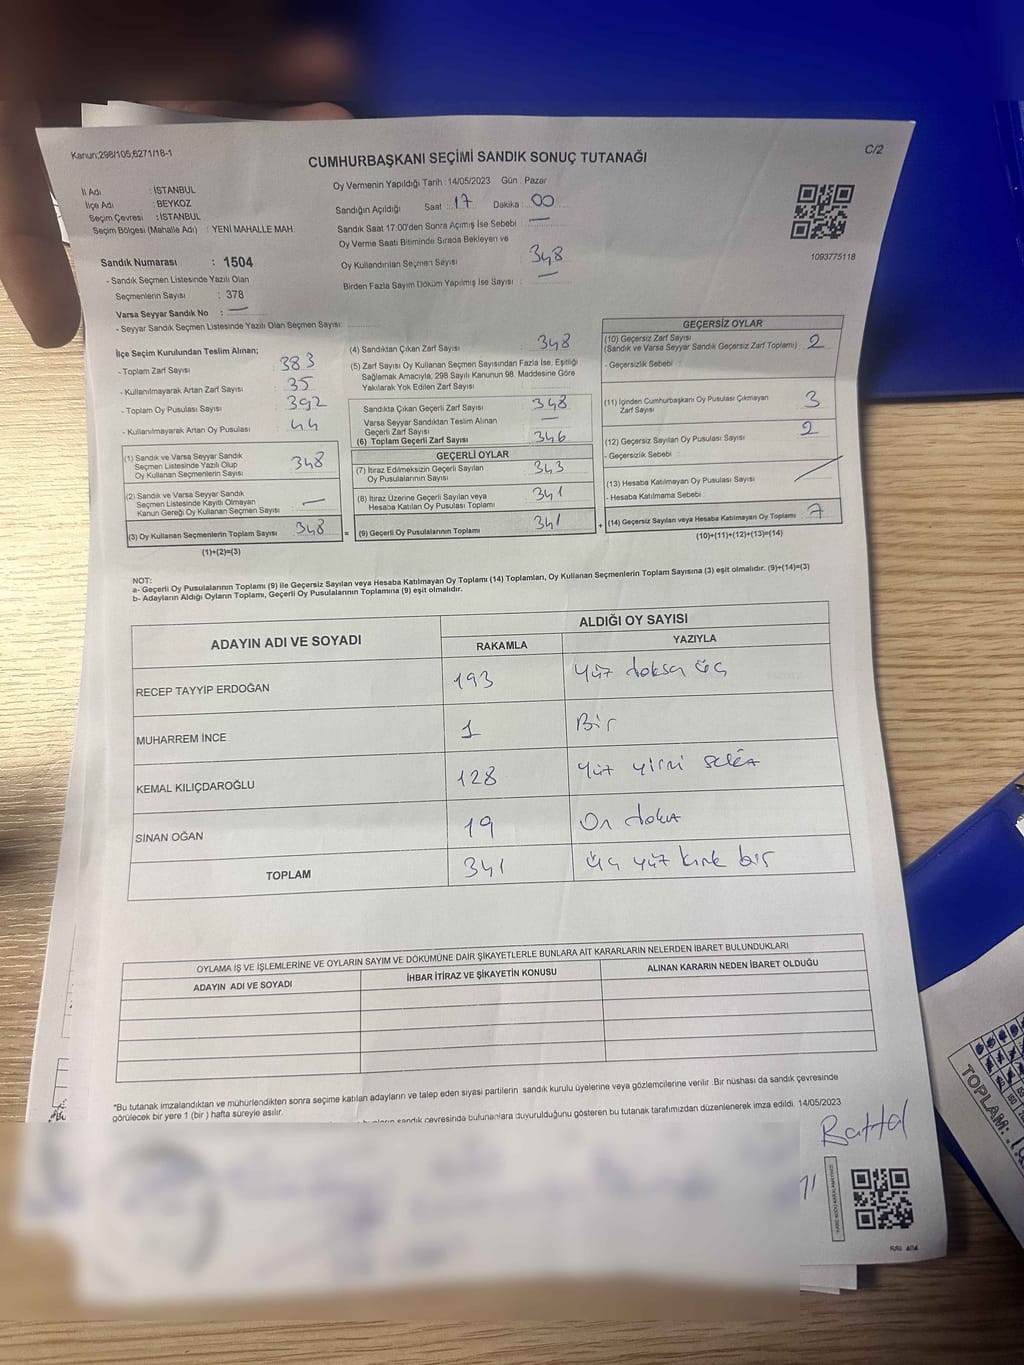 Kanun;298/105;6271/18-1
CUMHURBAŞKANI SEÇİMİ SANDIK SONUÇ TUTANAĞI
C/2
İl Adı : İSTANBUL
İlçe Adı : BEYKOZ
Seçim Çevresi : İSTANBUL
Seçim Bölgesi (Mahalle Adı) : YENİ MAHALLE MAH.
Sandık Numarası : 1504
- Sandık Seçmen Listesinde Yazılı Olan
Seçmenlerin Sayısı : 378
Varsa Seyyar Sandık No : —
- Seyyar Sandık Seçmen Listesinde Yazılı Olan Seçmen Sayısı:
Oy Vermenin Yapıldığı Tarih : 14/05/2023 Gün : Pazar
Sandığın Açıldığı Saat : 17 Dakika : 00
Sandık Saat 17:00'den Sonra Açımış İse Sebebi : —
Oy Verme Saati Bitiminde Sırada Bekleyen ve
Oy Kullandırılan Seçmen Sayısı : 348
Birden Fazla Sayım Döküm Yapılmış İse Sayısı : —
1093775118
İlçe Seçim Kurulundan Teslim Alınan;
- Toplam Zarf Sayısı : 383
- Kullanılmayarak Artan Zarf Sayısı : 35
- Toplam Oy Pusulası Sayısı : 392
- Kullanılmayarak Artan Oy Pusulası : 44
(1) Sandık ve Varsa Seyyar Sandık
Seçmen Listesinde Yazılı Olup
Oy Kullanan Seçmenlerin Sayısı : 348
(2) Sandık ve Varsa Seyyar Sandık
Seçmen Listesinde Kayıtlı Olmayan
Kanun Gereği Oy Kullanan Seçmen Sayısı : —
(3) Oy Kullanan Seçmenlerin Toplam Sayısı : 348
(1)+(2)=(3)
(4) Sandıktan Çıkan Zarf Sayısı : 348
(5) Zarf Sayısı Oy Kullanan Seçmen Sayısından Fazla İse, Eşitliği
Sağlamak Amacıyla, 298 Sayılı Kanunun 98. Maddesine Göre
Yakılarak Yok Edilen Zarf Sayısı :
Sandıkta Çıkan Geçerli Zarf Sayısı : 348
Varsa Seyyar Sandıktan Teslim Alınan
Geçerli Zarf Sayısı : —
(6) Toplam Geçerli Zarf Sayısı : 346
GEÇERLİ OYLAR
(7) İtiraz Edilmeksizin Geçerli Sayılan
Oy Pusulalarının Sayısı : 343
(8) İtiraz Üzerine Geçerli Sayılan veya
Hesaba Katılan Oy Pusulası Toplamı : 341
= (9) Geçerli Oy Pusulalarının Toplamı : 341 +
GEÇERSİZ OYLAR
(10) Geçersiz Zarf Sayısı
(Sandık ve Varsa Seyyar Sandık Geçersiz Zarf Toplamı) : 2
- Geçersizlik Sebebi :
(11) İçinden Cumhurbaşkanı Oy Pusulası Çıkmayan
Zarf Sayısı : 3
(12) Geçersiz Sayılan Oy Pusulası Sayısı : 2
- Geçersizlik Sebebi :
(13) Hesaba Katılmayan Oy Pusulası Sayısı :
- Hesaba Katılmama Sebebi :
(14) Geçersiz Sayılan veya Hesaba Katılmayan Oy Toplamı : 7
(10)+(11)+(12)+(13)=(14)
NOT:
a- Geçerli Oy Pusulalarının Toplamı (9) ile Geçersiz Sayılan veya Hesaba Katılmayan Oy Toplamı (14) Toplamları, Oy Kullanan Seçmenlerin Toplam Sayısına (3) eşit olmalıdır. (9)+(14)=(3)
b- Adayların Aldığı Oyların Toplamı, Geçerli Oy Pusulalarının Toplamına (9) eşit olmalıdır.
ADAYIN ADI VE SOYADI
ALDIĞI OY SAYISI
RAKAMLA YAZIYLA
RECEP TAYYİP ERDOĞAN 193 Yüz doksa üç
MUHARREM İNCE 1 Bir
KEMAL KILIÇDAROĞLU 128 Yüz yirmi
SİNAN OĞAN 19 On
TOPLAM 341 üç yüz kırk bir
OYLAMA İŞ VE İŞLEMLERİNE VE OYLARIN SAYIM VE DÖKÜMÜNE DAİR ŞİKAYETLERLE BUNLARA AİT KARARLARIN NELERDEN İBARET BULUNDUKLARI
ADAYIN ADI VE SOYADI İHBAR İTİRAZ VE ŞİKAYETİN KONUSU ALINAN KARARIN NEDEN İBARET OLDUĞU
*Bu tutanak imzalandıktan ve mühürlendikten sonra seçime katılan adayların ve talep eden siyasi partilerin sandık kurulu üyelerine veya gözlemcilerine verilir. Bir nüshası da sandık çevresinde
görülecek bir yere 1 (bir) hafta süreyle asılır.
sandık çevresinde bulunanlara duyurulduğunu gösteren bu tutanak tarafımızdan düzenlenerek imza edildi. 14/05/2023
Battal
TOPLAM: